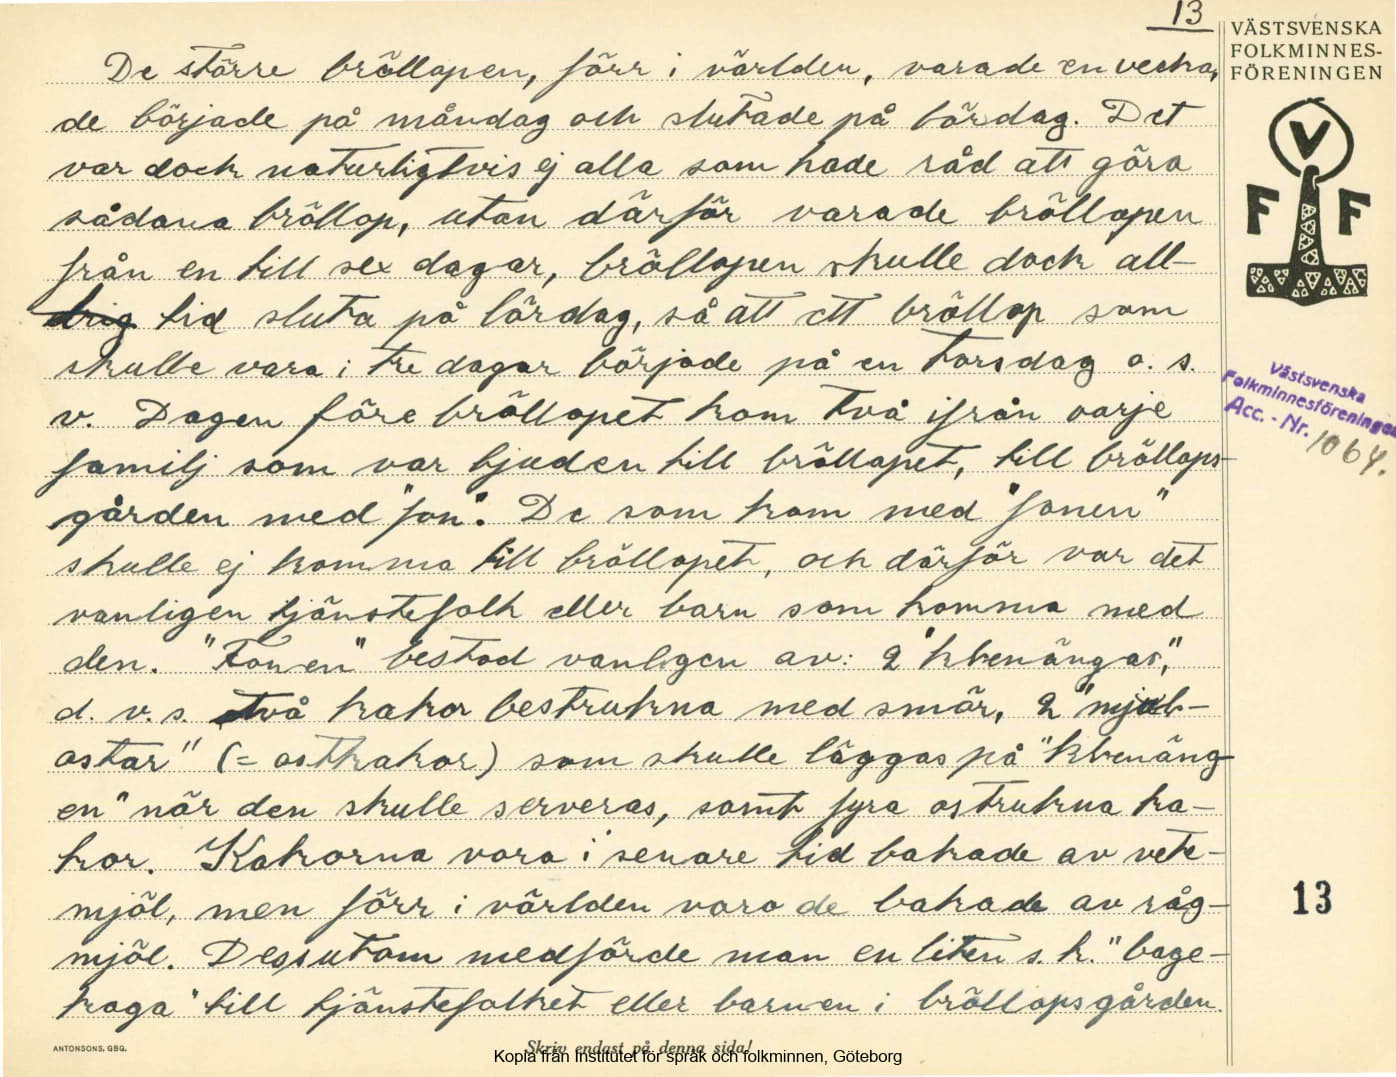 13
VÄSTSVENSKA
FOLKMINNES-
FÖRENINGEN
V
F F
De större bröllopen, förr i världen, varade en vecka,
de började på måndag och slutade på lördag. Det
var dock naturligtvis ej alla som hade råd att göra
sådana bröllop, utan därför varade bröllopen
från en till sex dagar, bröllopen skulle dock all-
tid sluta på lördag, så att ett bröllop som
skulle vara i tre dagar började på en torsdag o. s.
v. Dagen före bröllopet kom två ifrån varje
familj som var bjuden till bröllopet, till bröllops-
gården med "fon". De som kom med "fonen"
skulle ej komma till bröllopet, och därför var det
vanligen tjänstefolk eller barn som komma med
den. "Fonen" bestod vanligen av: 2
d. v. s. två kakor bestrukna med smör, 2
ostar" (= ostkakor) som skulle läggas på
en" när den skulle serveras, samt fyra ostrukna ka-
kor. Kakorna voro i senare tid bakade av vete-
mjöl, men förr i världen voro de bakade av råg-
mjöl. Dessutom medförde man en liten s. k. "bage-
kaga" till tjänstefolket eller barnen i bröllopsgården.
Västsvenska
Folkminnesföreningen
Acc. - Nr. 1064.
13
ANTONSONS, GBG.
Skriv endast på denna sida!
Kopia från Institutet för språk och folkminnen, Göteborg